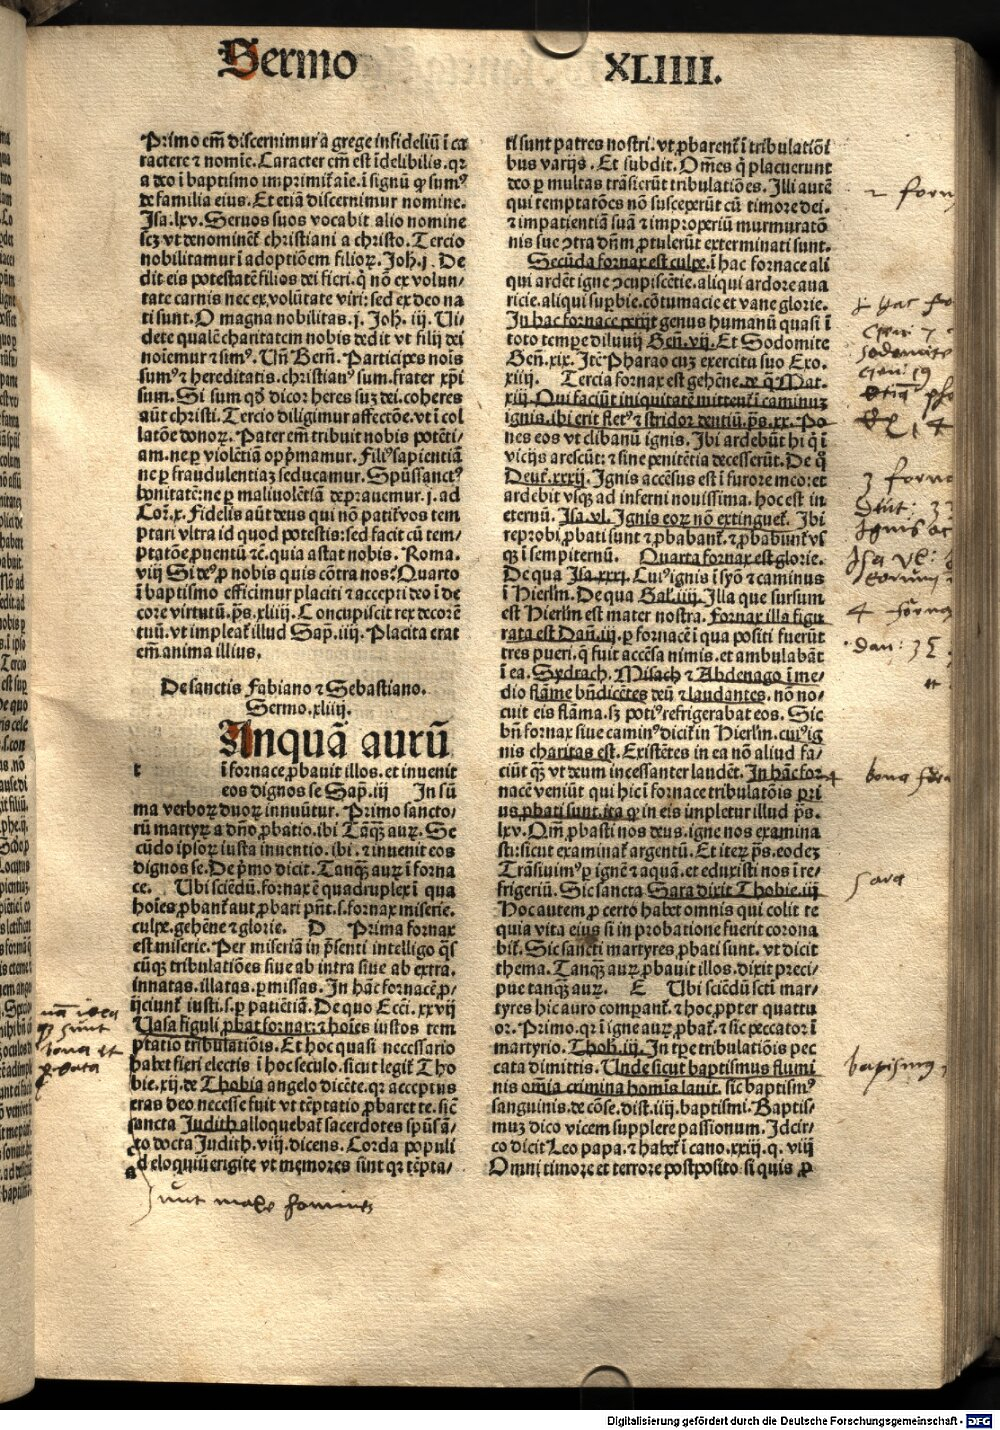 Sermo XLIIII.
Primo em̄ discernimur a grege infideliū ī ca
ractere ⁊ nomīe. Caracter em̄ est īdelibilis. qꝛ
a deo ī baptismo imprimit᷑ aīe. ī signū ꝙ sumꝰ
de familia eius. Et etiā discernimur nomine.
Isa. lxv. Seruos suos vocabit alio nomine
scꝫ vt denominēt᷑ christiani a christo. Tercio
nobilitamur ī adoptiōem filioꝝ. Joh̄. j. De
dit eis potestatē filios dei fieri. q̇ nō ex volun/
tate carnis nec ex volūtate viri: sed ex deo na
ti sunt. O magna nobilitas. j. Joh̄. iij. Ui/
dete qualē charitatem nobis dedit vt filij dei
noiemur ⁊ simꝰ. Uñ Berñ. Participes nois
sumꝰ ⁊ hereditatis. christianꝰ sum. frater xp̄i
sum. Si sum qḋ dicor heres suꝫ dei. coheres
aūt christi. Tercio diligimur affectōe. vt ī col
latōe donoꝝ. Pater em̄ tribuit nobis potēti/
am. ne ꝑ violētiā opp̄mamur. Filiꝰ sapientiā
ne ꝑ fraudulentiaꝫ seducamur. Spūssanctꝰ
bonitatē: ne ꝑ maliuolētiā deprauemur. j. ad
Coꝝ. x. Fidelis aūt deus qui nō patit᷑ vos tem
ptari vltra id quod potestis: sed facit cū tem/
ptatōe ꝓuentū ⁊ē. quia astat nobis. Roma.
viij Si deꝰ ꝓ nobis quis cōtra nos? Quarto
ī baptismo efficimur placiti ⁊ accepti deo ī de
core virtutū. p̄s. xliiij. Concupiscit rex decorē
tuū. vt impleat᷑ illud Sap̄. iiij. Placita erat
em̄ anima illius.
De sanctis Fabiano ⁊ Sebastiano.
Sermo. xliiij.
Anquā aurū
t ī fornace ꝓbauit illos. et inuenit
eos dignos se Sap̄. iij In sū
ma verboꝝ duoꝝ innuūtur. Primo sancto/
rū martyꝝ a dño ꝓbatio. ibi Tāqꝫ auꝝ. Se
cūdo ipsoꝝ iusta inuentio. ibi. ⁊ inuenit eos
dignos se. De p̄mo dicit. Tanqꝫ auꝝ ī forna
ce. Ubi sciēdū. fornax ē quadruplex ī qua
hoīes ꝓbant᷑ aut ꝓbati pn̄t. s. fornax miserie.
culpe. gehēne ⁊ glorie. D Prima fornax
est miserie. Per miseriā in p̄senti intelligo q̄s
cūqꝫ tribulatiōes siue ab intra siue ab extra.
innatas. illatas. ꝑmissas. In hac fornacē ꝓ/
ijciunt᷑ iusti. s. ꝓ patientiā. De quo Ecci. xxvij
Uasa figuli ꝓbat fornax: ⁊ hoīes iustos tem
ptatio tribulatiōis. Et hoc quasi necessario
habet fieri electis ī hoc seculo. sicut legit᷑ Tho
bie. xij. de Thobia angelo dicēte. qꝛ acceptus
eras deo necesse fuit vt tēptatio ꝓbaret te. sic̄
sancta Judith alloquebat᷑ sacerdotes spūsā/
to docta Judith. viij. dicens. Corda populi
ad eloquiū erigite vt memores sint qꝛ tēpta/
ti sunt patres nostri. vt ꝓbarent᷑ ī tribulatiōī
bus varijs. Et subdit. Om̄es q̇ placuerunt
deo ꝑ multas trāsierūt tribulatiōes. Illi autē
qui temptatōes nō susceperūt cū timore dei.
⁊ impatientiā suā ⁊ improperiū murmuratō
nis sue ↄtra dñm ꝓtulerūt exterminati sunt.
Secūda fornax est culpe. ī hac fornace ali
qui ardēt igne ↄcupiscētie. aliqui ardore aua
ricie. aliqui suꝑbie. cōtumacie et vane glorie.
In hac fornace perijt genus humanū quasi ī
toto tempe diluuij Geñ. vij. Et Sodomite
Geñ. xix. Itē Pharao cuꝫ exercitu suo Exo.
xiiij. Tercia fornax est gehēne. de q̄ Mat.
xiij. Qui faciūt iniquitatē mittent᷑ ī caminuꝫ
ignis. ibi erit fletꝰ ⁊ stridor dentiū. p̄s. xx. Po
nes eos vt clibanū ignis. Ibi ardebūt hi q̇ ī
vicijs arescūt: ⁊ sine penitētia decesserūt. De q̄
Deut᷑. xxxij. Ignis accēsus est ī furore meo: et
ardebit vsqꝫ ad inferni nouissima. hoc est in
eternū. Isa. vl. Ignis eoꝝ nō extinguet᷑. Ibi
reprobi ꝓbati sunt ⁊ ꝓbabant᷑. ⁊ ꝓbabunt᷑ vs
qꝫ ī sempiternū. Quarta fornax est glorie.
De qua Isa. xxxj. Cuiꝰ ignis ī syō ⁊ caminus
ī Hierl̄m. De qua Gal̄. iiij. Illa que sursum
est Hierl̄m est mater nostra. Fornax illa figu
rata est Dañ. iij. ꝑ fornacē ī qua positi fuerūt
tres pueri. q̄ fuit accēsa nimis. et ambulabāt
ī ea. Sydrach. Misach ⁊ Abdenago ī me/
dio flāme bn̄dicētes deū ⁊ laudantes. nō no/
cuit eis flāma. sꝫ potiꝰ refrigerabat eos. Sic
bñ fornax siue caminꝰ dicit᷑ in Hierl̄m. cuiꝰ ig
nis charitas est. Existētes in ea nō aliud fa/
ciūt qꝫ vt deum incessanter laudēt. In hāc for
nacē veniūt qui hic ī fornace tribulatōis pri
us ꝓbati sunt. ita ꝙ in eis impletur illud p̄s.
lxv. Qm̄ ꝓbasti nos deus. igne nos examina
sti: sicut examinat᷑ argentū. Et iteꝝ p̄s. eodeꝫ
Trāsiuimꝰ ꝑ ignē ⁊ aquā. et eduxisti nos ī re/
frigeriū. Sic sancta Sara dixit Thobie. iij
Hoc autem ꝓ certo habet omnis qui colit te
quia vita eius si in probatione fuerit corona
bit᷑. Sic sancti martyres ꝓbati sunt. vt dicit
thema. Tanqꝫ auꝝ ꝓbauit illos. dixit preci/
pue tanqꝫ auꝝ. E Ubi sciēdū scti mar/
tyres hic auro comparant᷑. ⁊ hoc ꝓpter quattu
or. Primo. qꝛ ī igne auꝝ ꝓbat᷑. ⁊ sic peccator ī
martyrio. Thob. iij. In tꝑe tribulatiōis pec
cata dimittis. Unde sicut baptismus flumi
nis omnia crimina homīs lauit. sic baptismꝰ
sanguinis. de cōse. dist. iiij. baptismi. Baptis/
muꝫ dico vicem supplere passionum. Idcir/
co dicit Leo papa. ⁊ habet᷑ ī cano. xxiij. q. viij
Omni timore et terrore postposito si quis ꝓ
baptismꝰ
sara
dan: 3
4 forna
3 forna
Digitalisierung gefördert durch die Deutsche Forschungsgemeinschaft - DFG